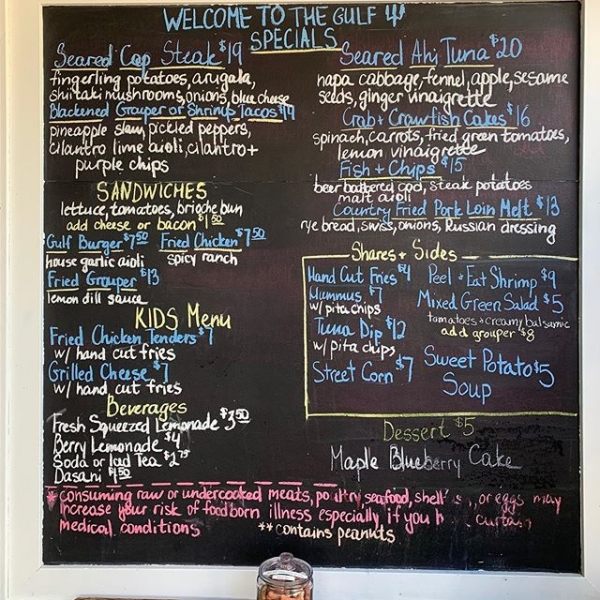 WELCOME TO THE GULF
SPECIALS
Seared Cap Steak $19
fingerling potatoes, arugala,
shiitaki mushrooms, onions, blue cheese
Blackened Grouper or Shrimp Tacos $14
pineapple slaw, pickled peppers,
cilantro lime aioli, cilantro +
purple chips
Seared Ahi Tuna $20
napa cabbage, fennel, apple, sesame
seeds, ginger vinaigrette
Crab + Crawfish Cakes $16
spinach, carrots, fried green tomatoes,
lemon vinaigrette
Fish + Chips $15
beer battered cod, steak potatoes
malt aioli
Country Fried Pork Loin Melt $13
rye bread, swiss, onions, Russian dressing
SANDWICHES
lettuce, tomatoes, brioche bun
add cheese or bacon $1.50
Gulf Burger $7.50 Fried Chicken $7.50
house garlic aioli spicy ranch
Fried Grouper $13
lemon dill sauce
KIDS Menu
Fried Chicken Tenders $7
w/ hand cut fries
Grilled Cheese $7
w/ hand cut fries
Beverages
Fresh Squeezed Lemonade $3.50
Berry Lemonade $4
Soda or Iced Tea $2.75
Dasani $1.50
Shares + Sides
Hand Cut Fries $4
Hummus $7
w/ pita chips
Tuna Dip $12
w/ pita chips
Street Corn $7
Peel + Eat Shrimp $9
Mixed Green Salad $5
tomatoes + creamy balsamic
add grouper $8
Sweet Potato $5
Soup
Dessert $5
Maple Blueberry Cake
* consuming raw or undercooked meats, poultry, seafood, shell or eggs may
increase your risk of foodborn illness especially if you h certain
medical conditions
** contains peanuts